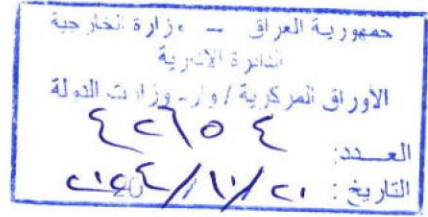 جمهورية العراق – وزارة الخارجية
الدائرة الادارية
الأوراق المركزية / وارد وزارات الدولة
العــدد: ٤٢٦٥٤
التاريخ: ٢١ /١٠/ ٢٠٢٤